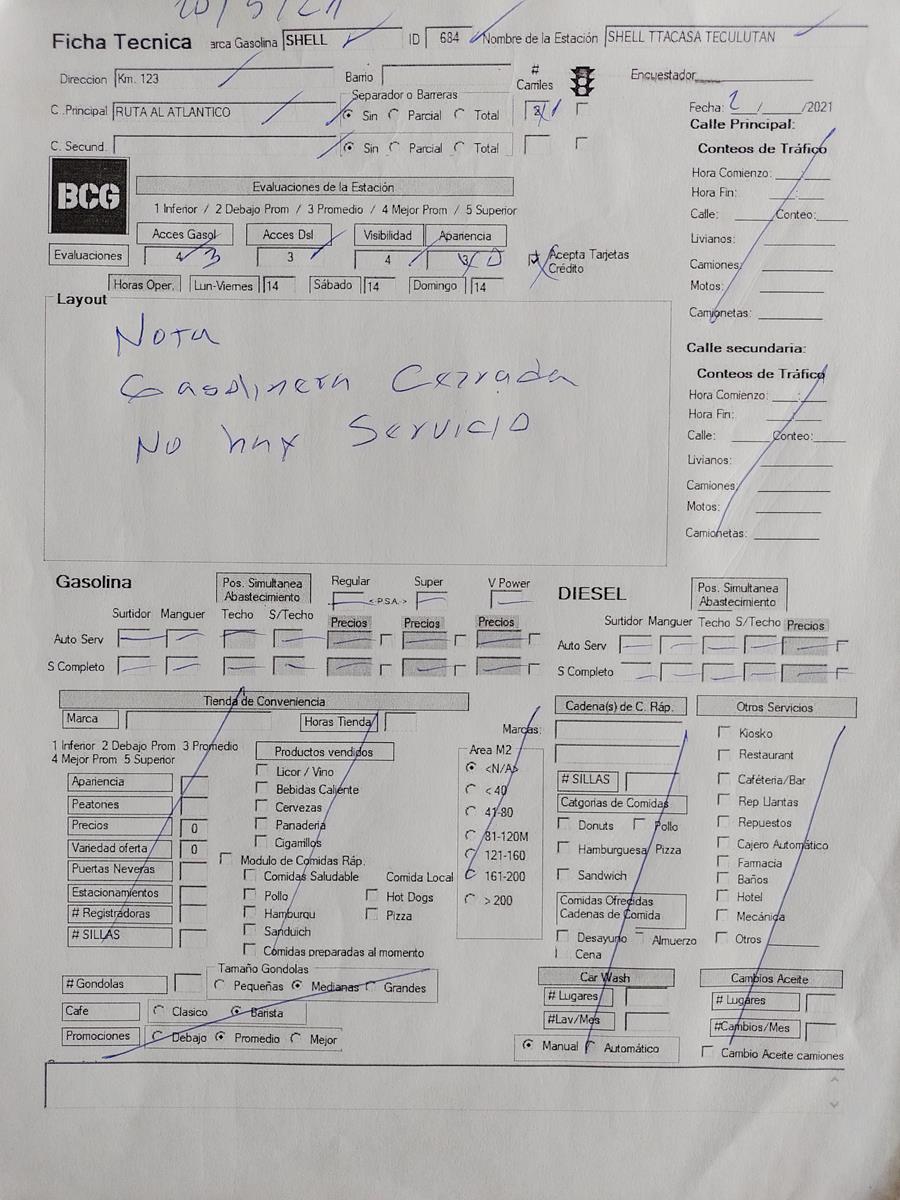 20/5/21
Ficha Tecnica arca Gasolina SHELL ID 684 Nombre de la Estación SHELL TTACASA TECULUTAN
Direccion Km. 123 Barrio # Carriles Encuestador
Separador o Barreras
C .Principal RUTA AL ATLANTICO Sin Parcial Total Fecha: 2 / /2021
Calle Principal:
C. Secund. Sin Parcial Total Conteos de Tráfico
BCG
Evaluaciones de la Estación
1 Inferior / 2 Debajo Prom / 3 Promedio / 4 Mejor Prom / 5 Superior
Acces Gasol Acces Dsl Visibilidad Apariencia
Evaluaciones 4 3 3 4 3 0 Acepta Tarjetas Crédito
Horas Oper. Lun-Viernes 14 Sábado 14 Domingo 14
Hora Comienzo: :
Hora Fin: :
Calle: Conteo:
Livianos:
Camiones:
Motos:
Camionetas:
Layout
Nota
Gasolinera Cerrada
No hay Servicio
Calle secundaria:
Conteos de Tráfico
Hora Comienzo: :
Hora Fin: :
Calle: Conteo:
Livianos:
Camiones:
Motos:
Camionetas:
Gasolina Pos. Simultanea Abastecimiento Regular <-P.S.A.-> Super V Power
Surtidor Manguer Techo S/Techo Precios Precios Precios
Auto Serv
S Completo
DIESEL Pos. Simultanea Abastecimiento
Surtidor Manguer Techo S/Techo Precios
Auto Serv
S Completo
Tienda de Conveniencia
Marca Horas Tienda
1 Inferior 2 Debajo Prom 3 Promedio
4 Mejor Prom 5 Superior
Apariencia
Peatones
Precios 0
Variedad oferta 0
Puertas Neveras
Estacionamientos
# Registradoras
# SILLAS
Productos vendidos
Licor / Vino
Bebidas Caliente
Cervezas
Panaderia
Cigarrillos
Modulo de Comidas Ráp.
Comidas Saludable Comida Local
Pollo Hot Dogs
Hamburqu Pizza
Sanduich
Comidas preparadas al momento
Area M2
<N/A>
< 40
41-80
81-120M
121-160
161-200
> 200
# Gondolas
Tamaño Gondolas
Pequeñas Medianas Grandes
Cafe Clasico Barista
Promociones Debajo Promedio Mejor
Cadena(s) de C. Ráp.
Marcas:
# SILLAS
Catgorias de Comidas
Donuts Pollo
Hamburguesa Pizza
Sandwich
Comidas Ofrecidas
Cadenas de Comida
Desayuno Almuerzo
Cena
Car Wash
# Lugares
#Lav/Mes
Manual Automático
Otros Servicios
Kiosko
Restaurant
Caféteria/Bar
Rep Llantas
Repuestos
Cajero Automático
Farmacia
Baños
Hotel
Mecánica
Otros
Cambios Aceite
# Lugares
#Cambios/Mes
Cambio Aceite camiones